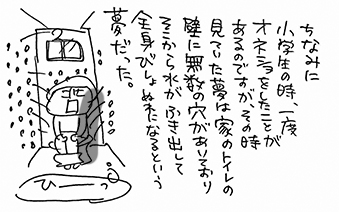 ちなみに
小学生の時、一度
オネショをしたことが
あるのですが、その時
見ていた夢は家のトイレの
壁に無数の穴があいており
そこから水がふき出して
全身びしょぬれになるという
夢だった。
ひーっ